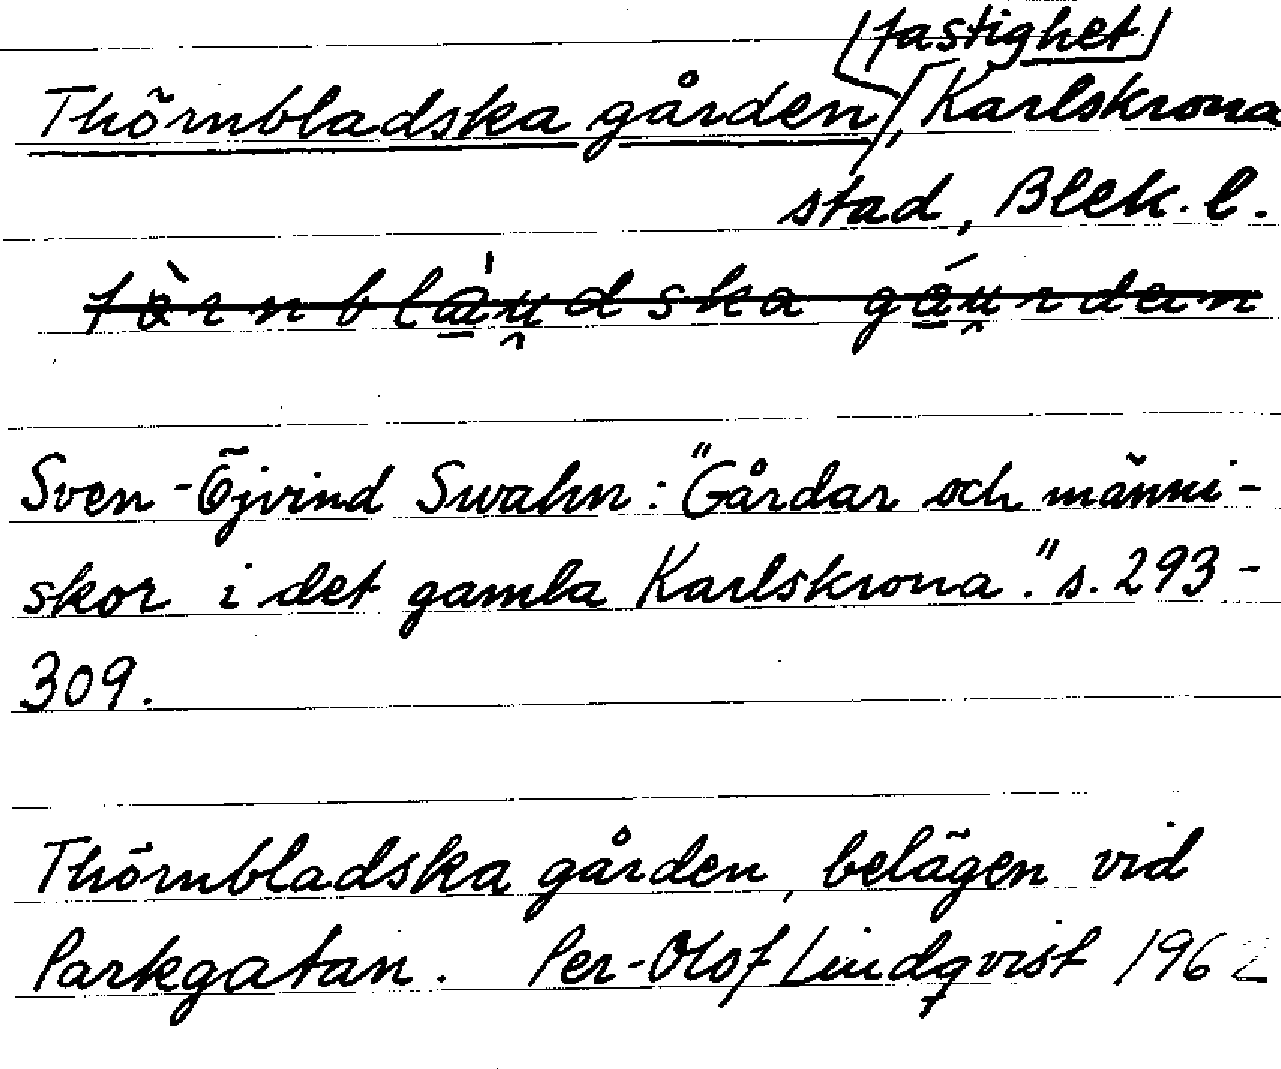 [fastighet]
Thörnbladska gården, Karlskrona
stad, Blek. l.
Sven-Öjvind Swahn: "Gårdar och männi-
skor i det gamla Karlskrona." s. 293-
309.
Thörnbladska gården, belägen vid
Parkgatan. Per-Olof Lindqvist 1962